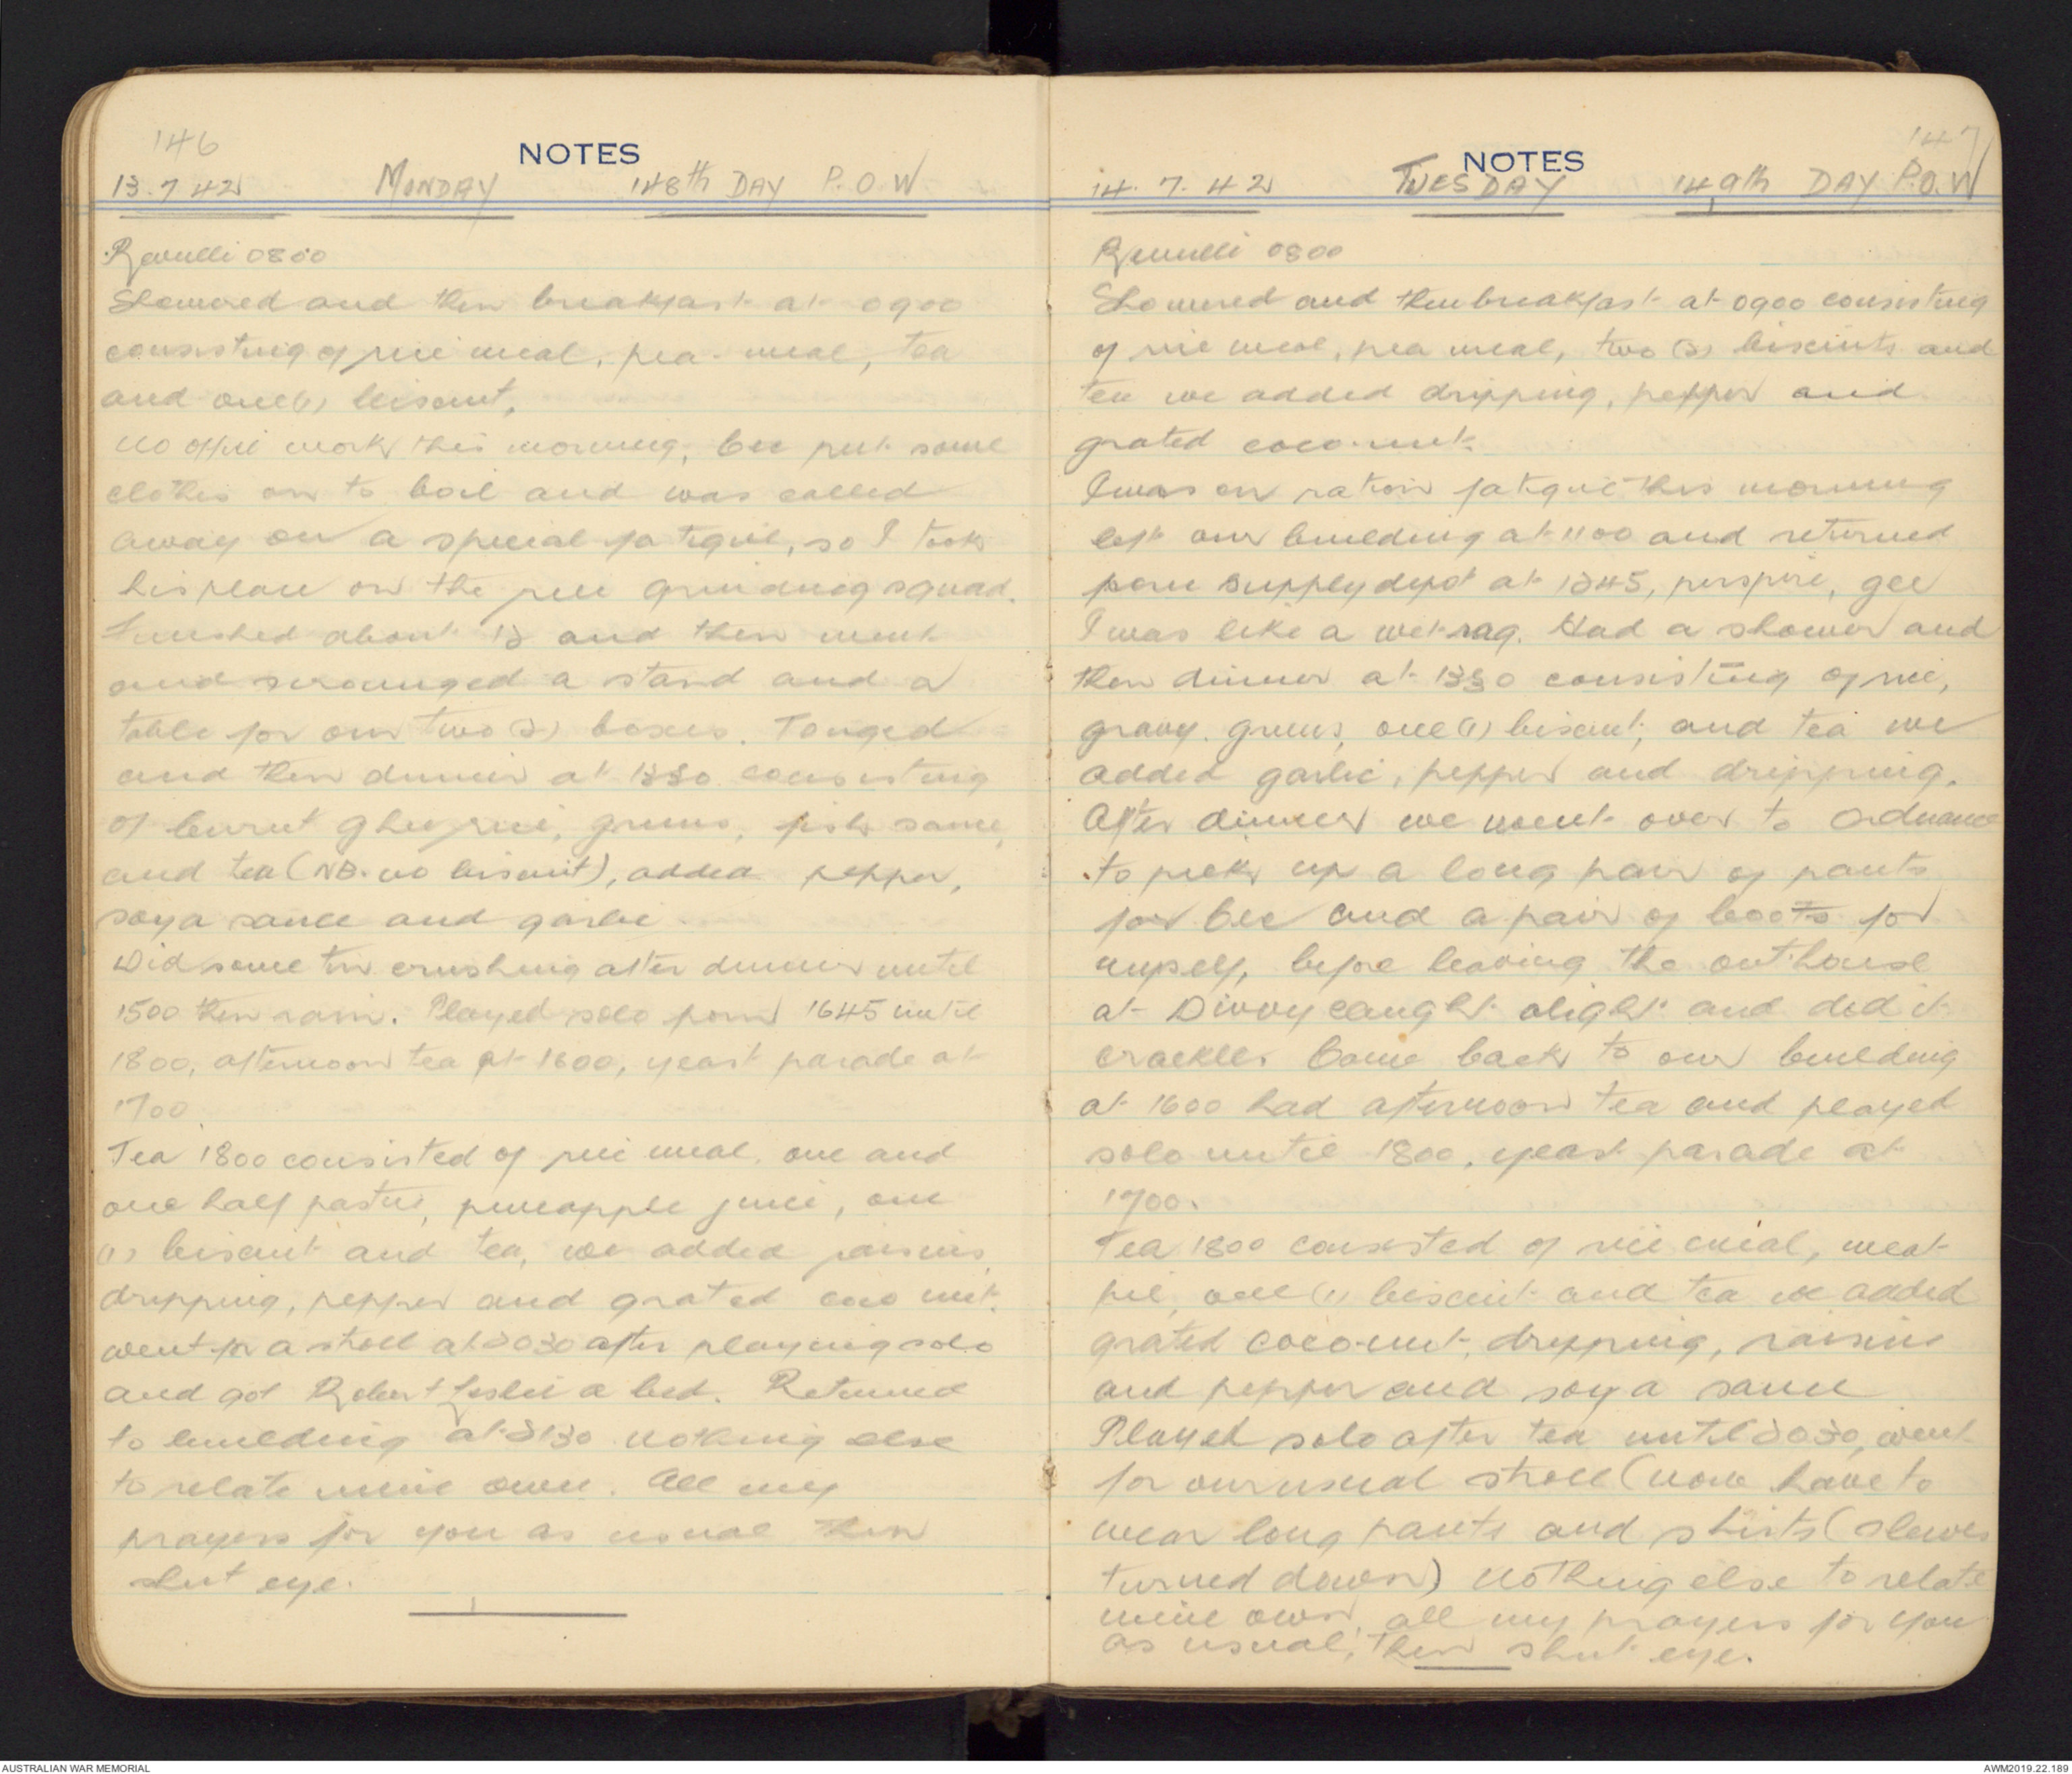 146
NOTES
13.7.42 MONDAY 148th DAY P.O.W
Reveille 0800
Showered and then breakfast at 0900
consisting of rice meal, pea meal, tea
and one (1) biscuit.
No office work this morning, Cec put some
clothes on to boil and was called
away on a special fatigue, so I took
his place on the rice grinding squad.
Finished about 12 and then went
and scrounged a stand and a
table for our two (2) boxes. Tonged
and then dinner at 1330 consisting
of burnt ghee rice, greens, fish sauce,
and tea (NB. no biscuit), added pepper,
soya sauce and garlic.
Did some tin crushing after dinner until
1500 then rain. Played solo from 1645 until
1800, afternoon tea at 1600, yeast parade at
1700.
Tea 1800 consisted of rice meal, one and
one half pasties, pineapple juice, one
(1) biscuit and tea, we added raisins,
dripping, pepper and grated coco nut.
went for a stroll at 2030 after playing solo
and got Robert Leslie a bed. Returned
to building at 2130 nothing else
to relate mine own. All my
prayers for you as usual then
shut eye.
147
NOTES
14.7.42 TUESDAY 149th DAY P.O.W
Reveille 0800
Showered and then breakfast at 0900 consisting
of rice meal, pea meal, two (2) biscuits and
tea we added dripping, pepper and
grated coco-nut.
I was on ration fatigue this morning
left our building at 1100 and returned
from supply depot at 1245, perspire, gee
I was like a wet rag. Had a shower and
then dinner at 1330 consisting of rice,
gravy, greens, one (1) biscuit, and tea we
added garlic, pepper and dripping.
After dinner we went over to Ordnance
to pick up a long pair of pants
for Cec and a pair of boots for
myself, before leaving the outhouse
at Divvy caught alight and did it
crackle. Came back to our building
at 1600 had afternoon tea and played
solo until 1800, yeast parade at
1700.
Tea 1800 consisted of rice meal, meat
pie, one (1) biscuit and tea we added
grated coco-nut, dripping, raisins
and pepper and soya sauce
Played solo after tea until 2030, went
for our usual stroll (now have to
wear long pants and shirts (sleeves
turned down) nothing else to relate
mine own, all my prayers for you
as usual, then shut eye.
AUSTRALIAN WAR MEMORIAL
AWM2019.22.189